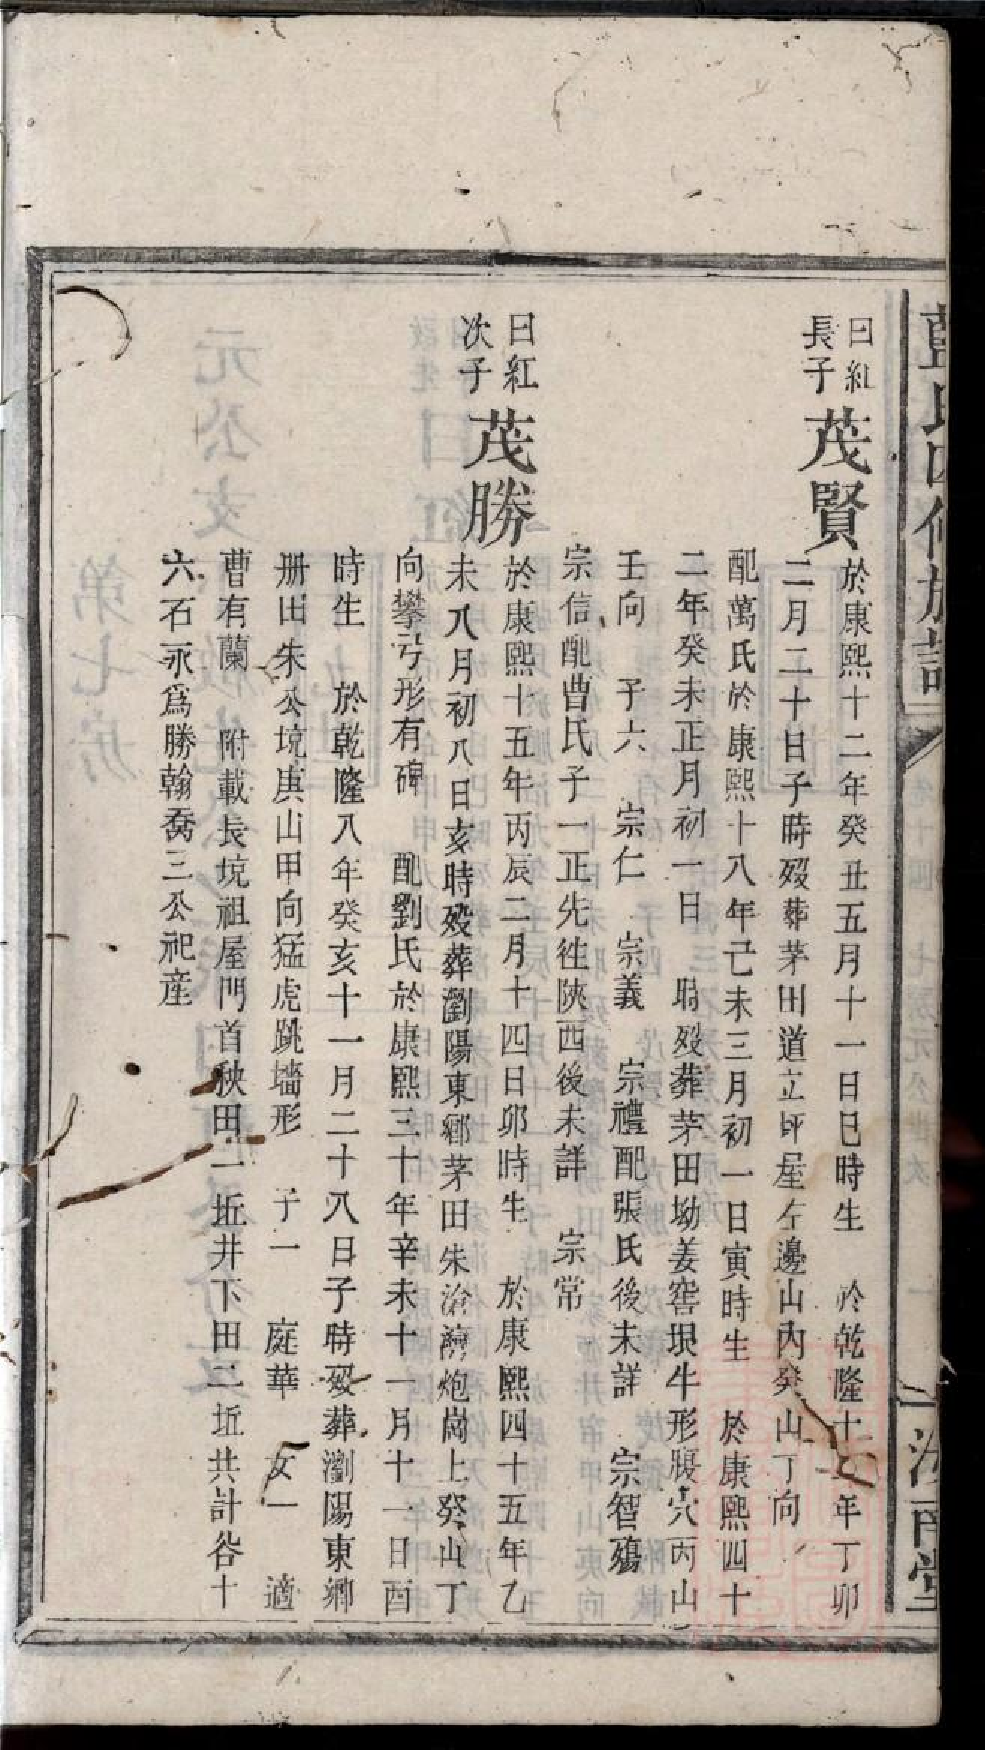 藍氏四修族譜
汝南堂
曰紅
長子
茂賢
於康熙十二年癸丑五月十一日巳時生 於乾隆十二年丁卯
二月二十日子時歿葬茅田道立屋左邊山內癸山丁向
配萬氏於康熙十八年己未三月初一日寅時生 於康熙四十
二年癸未正月初一日 時歿葬茅田坳姜窖垠牛形腹穴丙山
壬向 子六 宗仁 宗義 宗禮配張氏後未詳 宗智殤
宗信配曹氏子一正先徃陝西後未詳 宗常
曰紅
次子
茂勝
於康熙十五年丙辰二月十四日卯時生 於康熙四十五年乙
未八月初八日亥時歿葬瀏陽東鄉茅田朱炮崗上癸山丁
向攀弓形有碑 配劉氏於康熙三十年辛未十一月十一日酉
時生 於乾隆八年癸亥十一月二十八日子時歿葬瀏陽東鄉
册田朱公境庚山甲向猛虎跳墻形 子一 庭華 女一 適
曹有蘭 附載長境祖屋門首秧田一坵井下田二坵共計谷十
六石永爲勝翰喬三公祀産